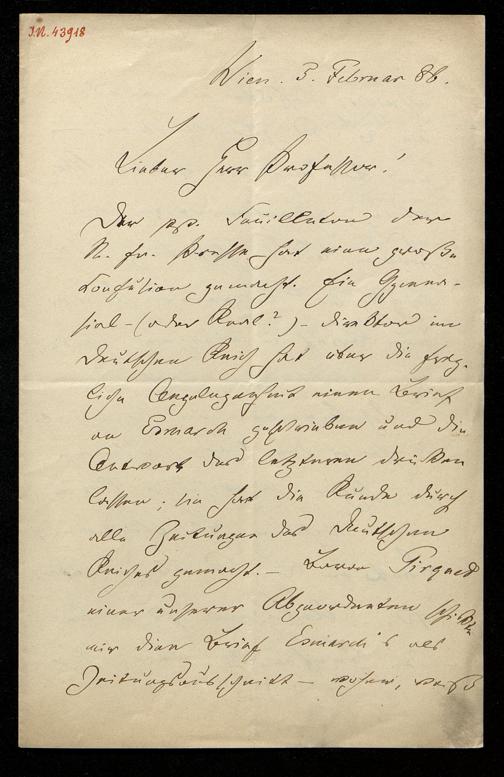 I.N. 43918
Wien. 3. Februar 86.
Lieber Herr Professor!
Der Feuilleton der
N. fr. Presse hat eine große
Confusion gemacht. Ein Gymna-
sial- (oder Real?) - direktor im
deutschen Reich hat über die frag-
liche Angelegenheit einen Brief
an Esmarch geschrieben und die
Antwort des letzteren drucken
lassen; sie hat die Runde durch
alle Zeitungen des deutschen
Reiches gemacht. — Baron Pirquet
einer unserer Abgeordneten schickte
mir den Brief Esmarch's als
Zeitungsausschnitt — woher, weiß